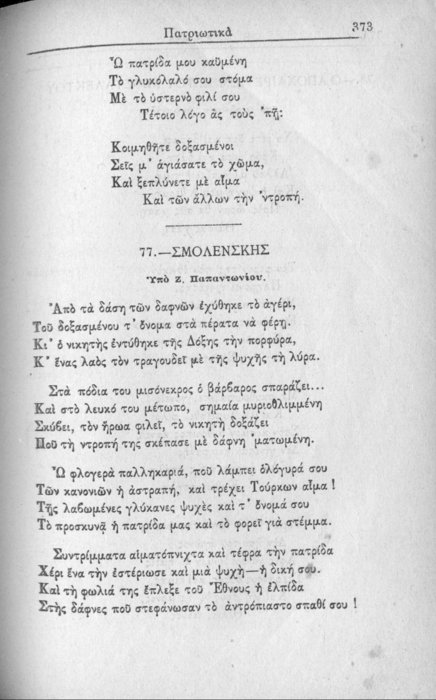 Πατριωτικὰ
373
Ὦ πατρίδα μου καϋμένη
Τὸ γλυκόλαλό σου στόμα
Μὲ τὸ ὑστερνὸ φιλί σου
Τέτοιο λόγο ἂς τοὺς ’πῇ:
Κοιμηθῆτε δοξασμένοι
Σεῖς μ’ ἁγιάσατε τὸ χῶμα,
Καὶ ξεπλύνετε μὲ αἷμα
Καὶ τῶν ἄλλων τὴν ’ντροπή.
77.—ΣΜΟΛΕΝΣΚΗΣ
Ὑπὸ Ζ. Παπαντωνίου.
Ἀπὸ τὰ δάση τῶν δαφνῶν ἐχύθηκε τὸ ἀγέρι,
Τοῦ δοξασμένου τ’ ὄνομα στὰ πέρατα νὰ φέρῃ.
Κι’ ὁ νικητὴς ἐντύθηκε τῆς Δόξης τὴν πορφύρα,
Κ’ ἕνας λαὸς τὸν τραγουδεῖ μὲ τῆς ψυχῆς τὴ λύρα.
Στὰ πόδια του μισόνεκρος ὁ βάρβαρος σπαράζει...
Καὶ στὸ λευκό του μέτωπο, σημαία μυριοθλιμμένη
Σκύβει, τὸν ἥρωα φιλεῖ, τὸ νικητὴ δοξάζει
Ποῦ τὴ ντροπή της σκέπασε μὲ δάφνη ’ματωμένη.
Ὦ φλογερὰ παλληκαριά, ποῦ λάμπει ὁλόγυρά σου
Τῶν κανονιῶν ἡ ἀστραπή, καὶ τρέχει Τούρκων αἷμα !
Τῆς λαβωμένες γλύκανες ψυχὲς καὶ τ’ ὄνομά σου
Τὸ προσκυνᾷ ἡ πατρίδα μας καὶ τὸ φορεῖ γιὰ στέμμα.
Συντρίμματα αἱματόπνιχτα καὶ τέφρα τὴν πατρίδα
Χέρι ἕνα τὴν ἐστέριωσε καὶ μιὰ ψυχὴ—ἡ δική σου.
Καὶ τὴ φωλιά της ἔπλεξε τοῦ Ἔθνους ἡ ἐλπίδα
Στῆς δάφνες ποῦ στεφάνωσαν τὸ ἀντρόπιαστο σπαθί σου !